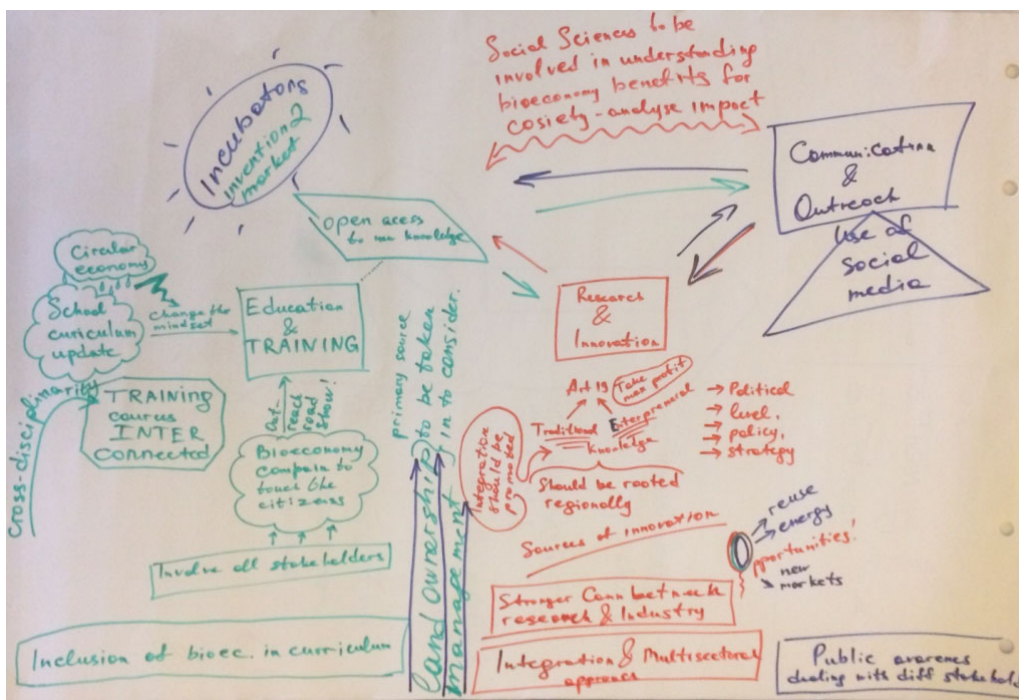 Social Sciences to be
involved in understanding
bioeconomy benefits for
cosiety - analyse impact
Incubators
invention 2
market
Open acess
to knowledge
Communication
&
Outreach
Use of
social
media
Circular
economy
School
curriculum
update
change the
mindset
Education
&
TRAINING
Research
&
Innovation
cross-disciplinarity
TRAINING
courses
INTER
CONNECTED
Out-
reach
road
show!
Bioeconomy
compain to
touch the
citizens
Involve all stakeholders
Inclusion of bioec. in curriculum
primary source
land ownership to be taken
management in to consider.
Take
profit
Traditional
Enterpreneral
Knowledge
Integration
should be
promoted
Should be rooted
regionally
→ Political
→ level,
→ policy,
→ strategy
Sources of innovation
reuse
energy
opportunities!
new
markets
Stronger
research & Industry
Integration & Multisectoral
Public
dealing with diff